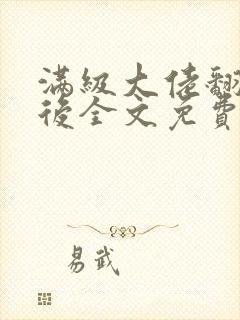 滿級大佬翻
後全文免費
易武